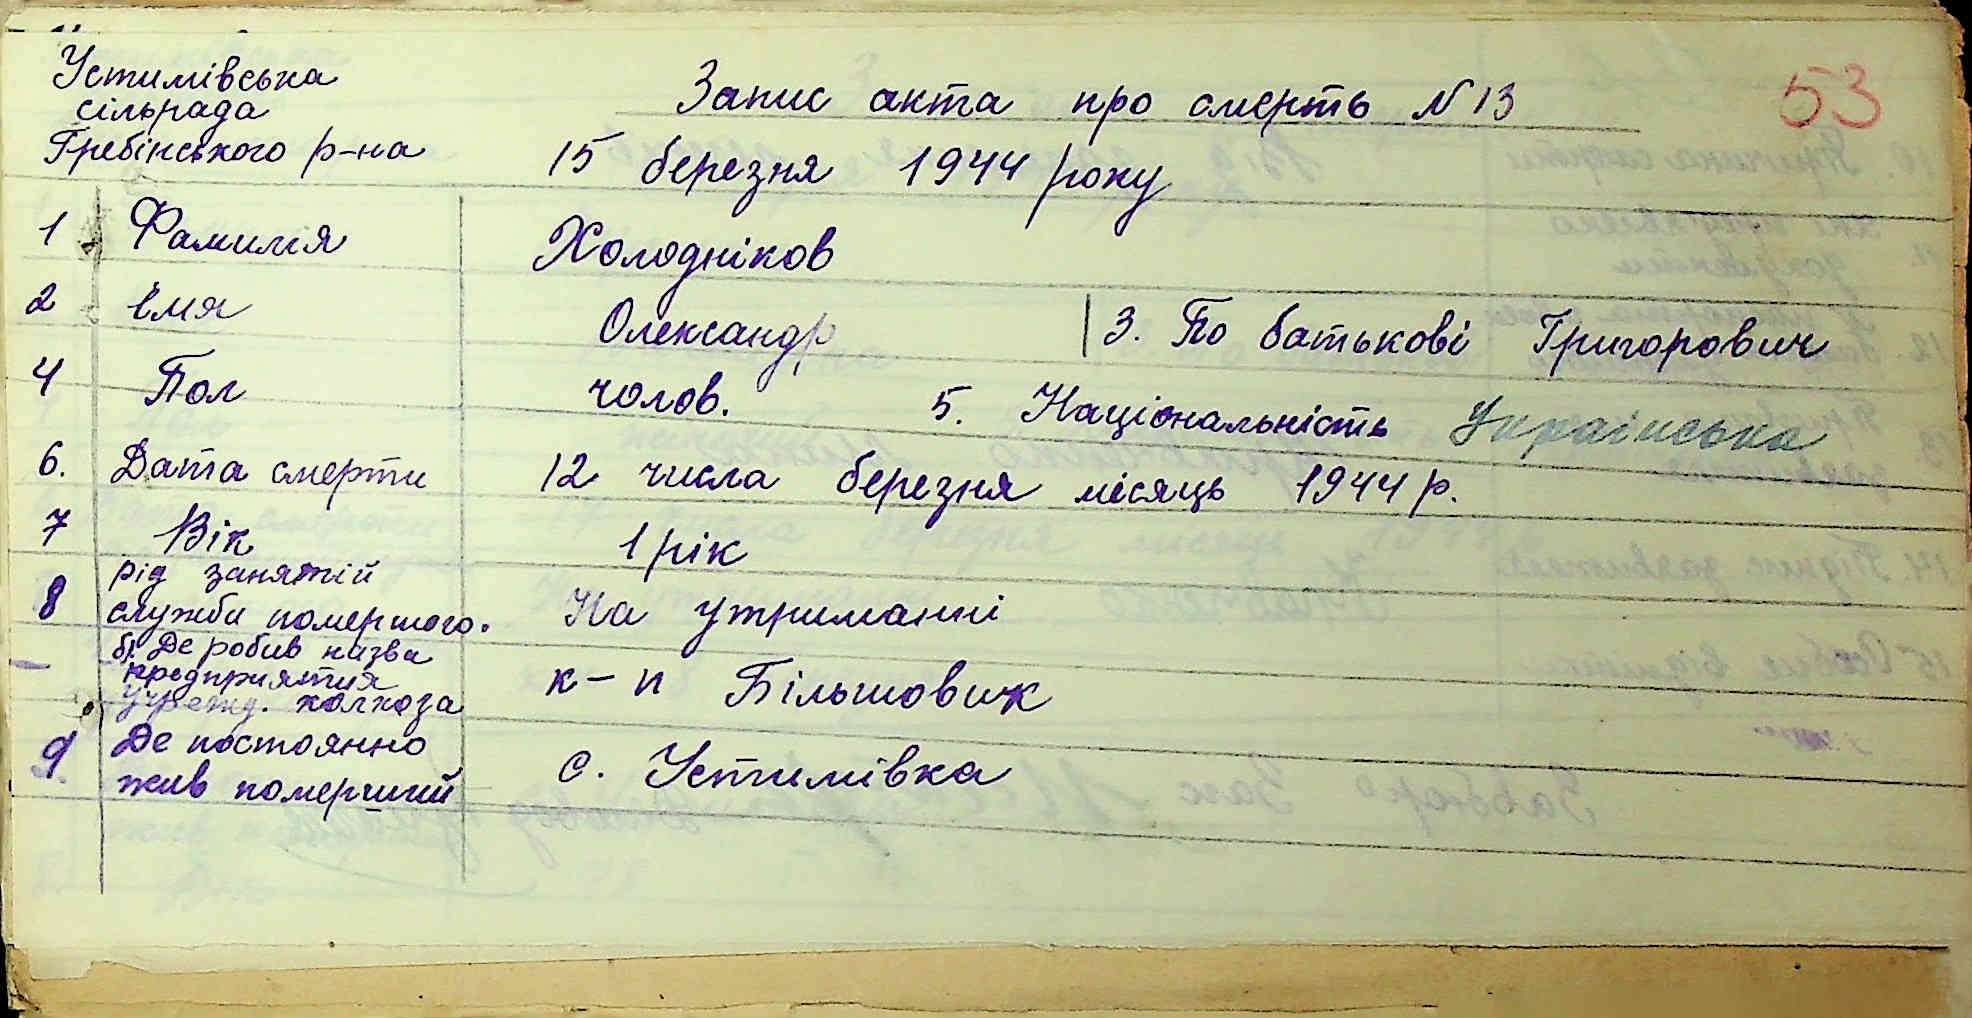 Устимівська
сільрада
Гребінського р-на
53
Запис акта про смерть N 13
15 березня 1944 року
1 Фамилія Холодніков
2 Імя Олександр 3. По батькові Григорович
4 Пол чолов. 5. Національність Українська
6. Дата смерти 12 числа березня місяць 1944 р.
7 Вік 1 рік
8 рід занятій
служби помершого. На утриманні
б). Де робив назва
предприятия
учрежд. колхоза к-п Більшовик
9. Де постоянно
жив померший с. Устимівка